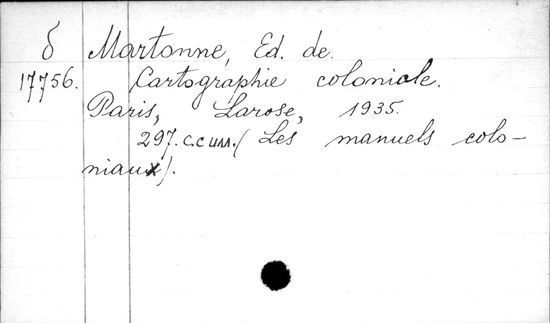 б Martonne, Ed. de.
17756. Cartographie coloniale.
Paris, Larose, 1935.
297. с. с илл. (Les manuels colo-
niaux).